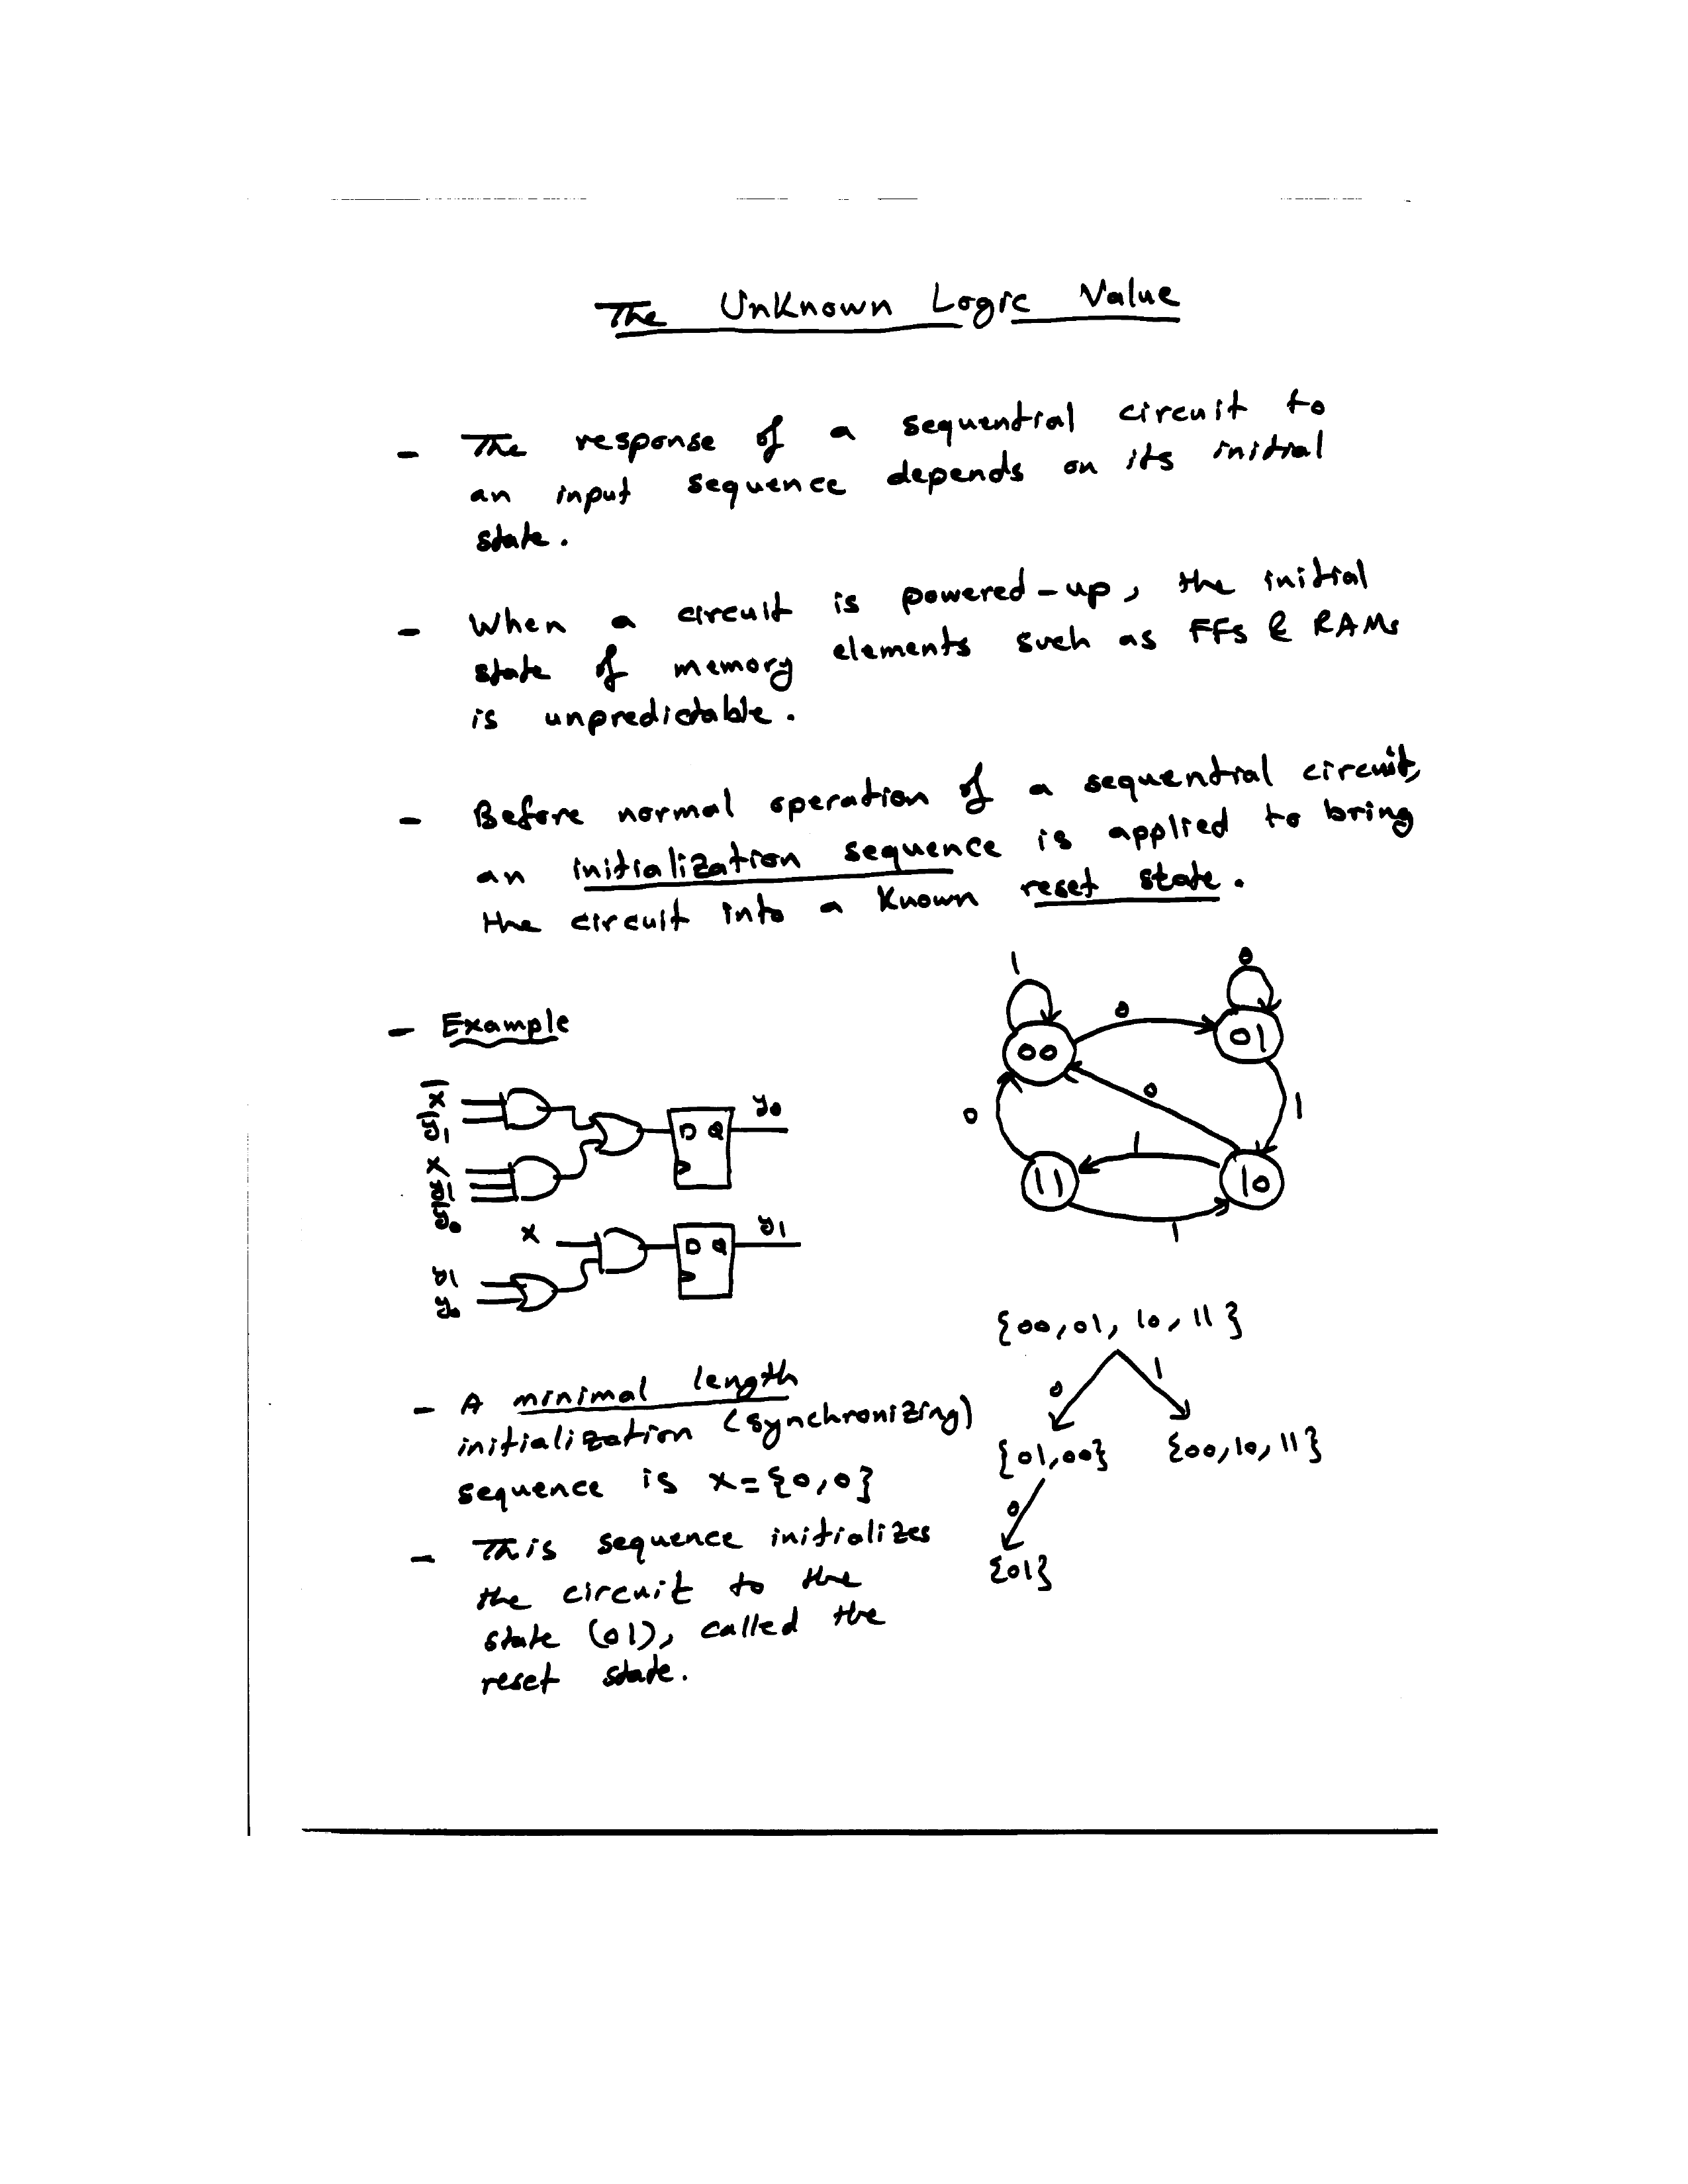 The Unknown Logic Value
- The response of a sequential circuit to
an input sequence depends on its initial
state.
- When a circuit is powered-up, the initial
state of memory elements such as FFs & RAMs
is unpredictable.
- Before normal operation of a sequential circuit,
an initialization sequence is applied to bring
the circuit into a known reset state.
- Example
x̅
y̅1
x
y1
y̅0
D Q
y0
x
y1
y0
D Q
y1
1
0
00
0
01
0
0
1
1
11
10
1
{00,01,10,11}
0
1
{01,00}
{00,10,11}
0
{01}
- A minimal length
initialization (synchronizing)
sequence is x={0,0}
- This sequence initializes
the circuit to the
state (01), called the
reset state.